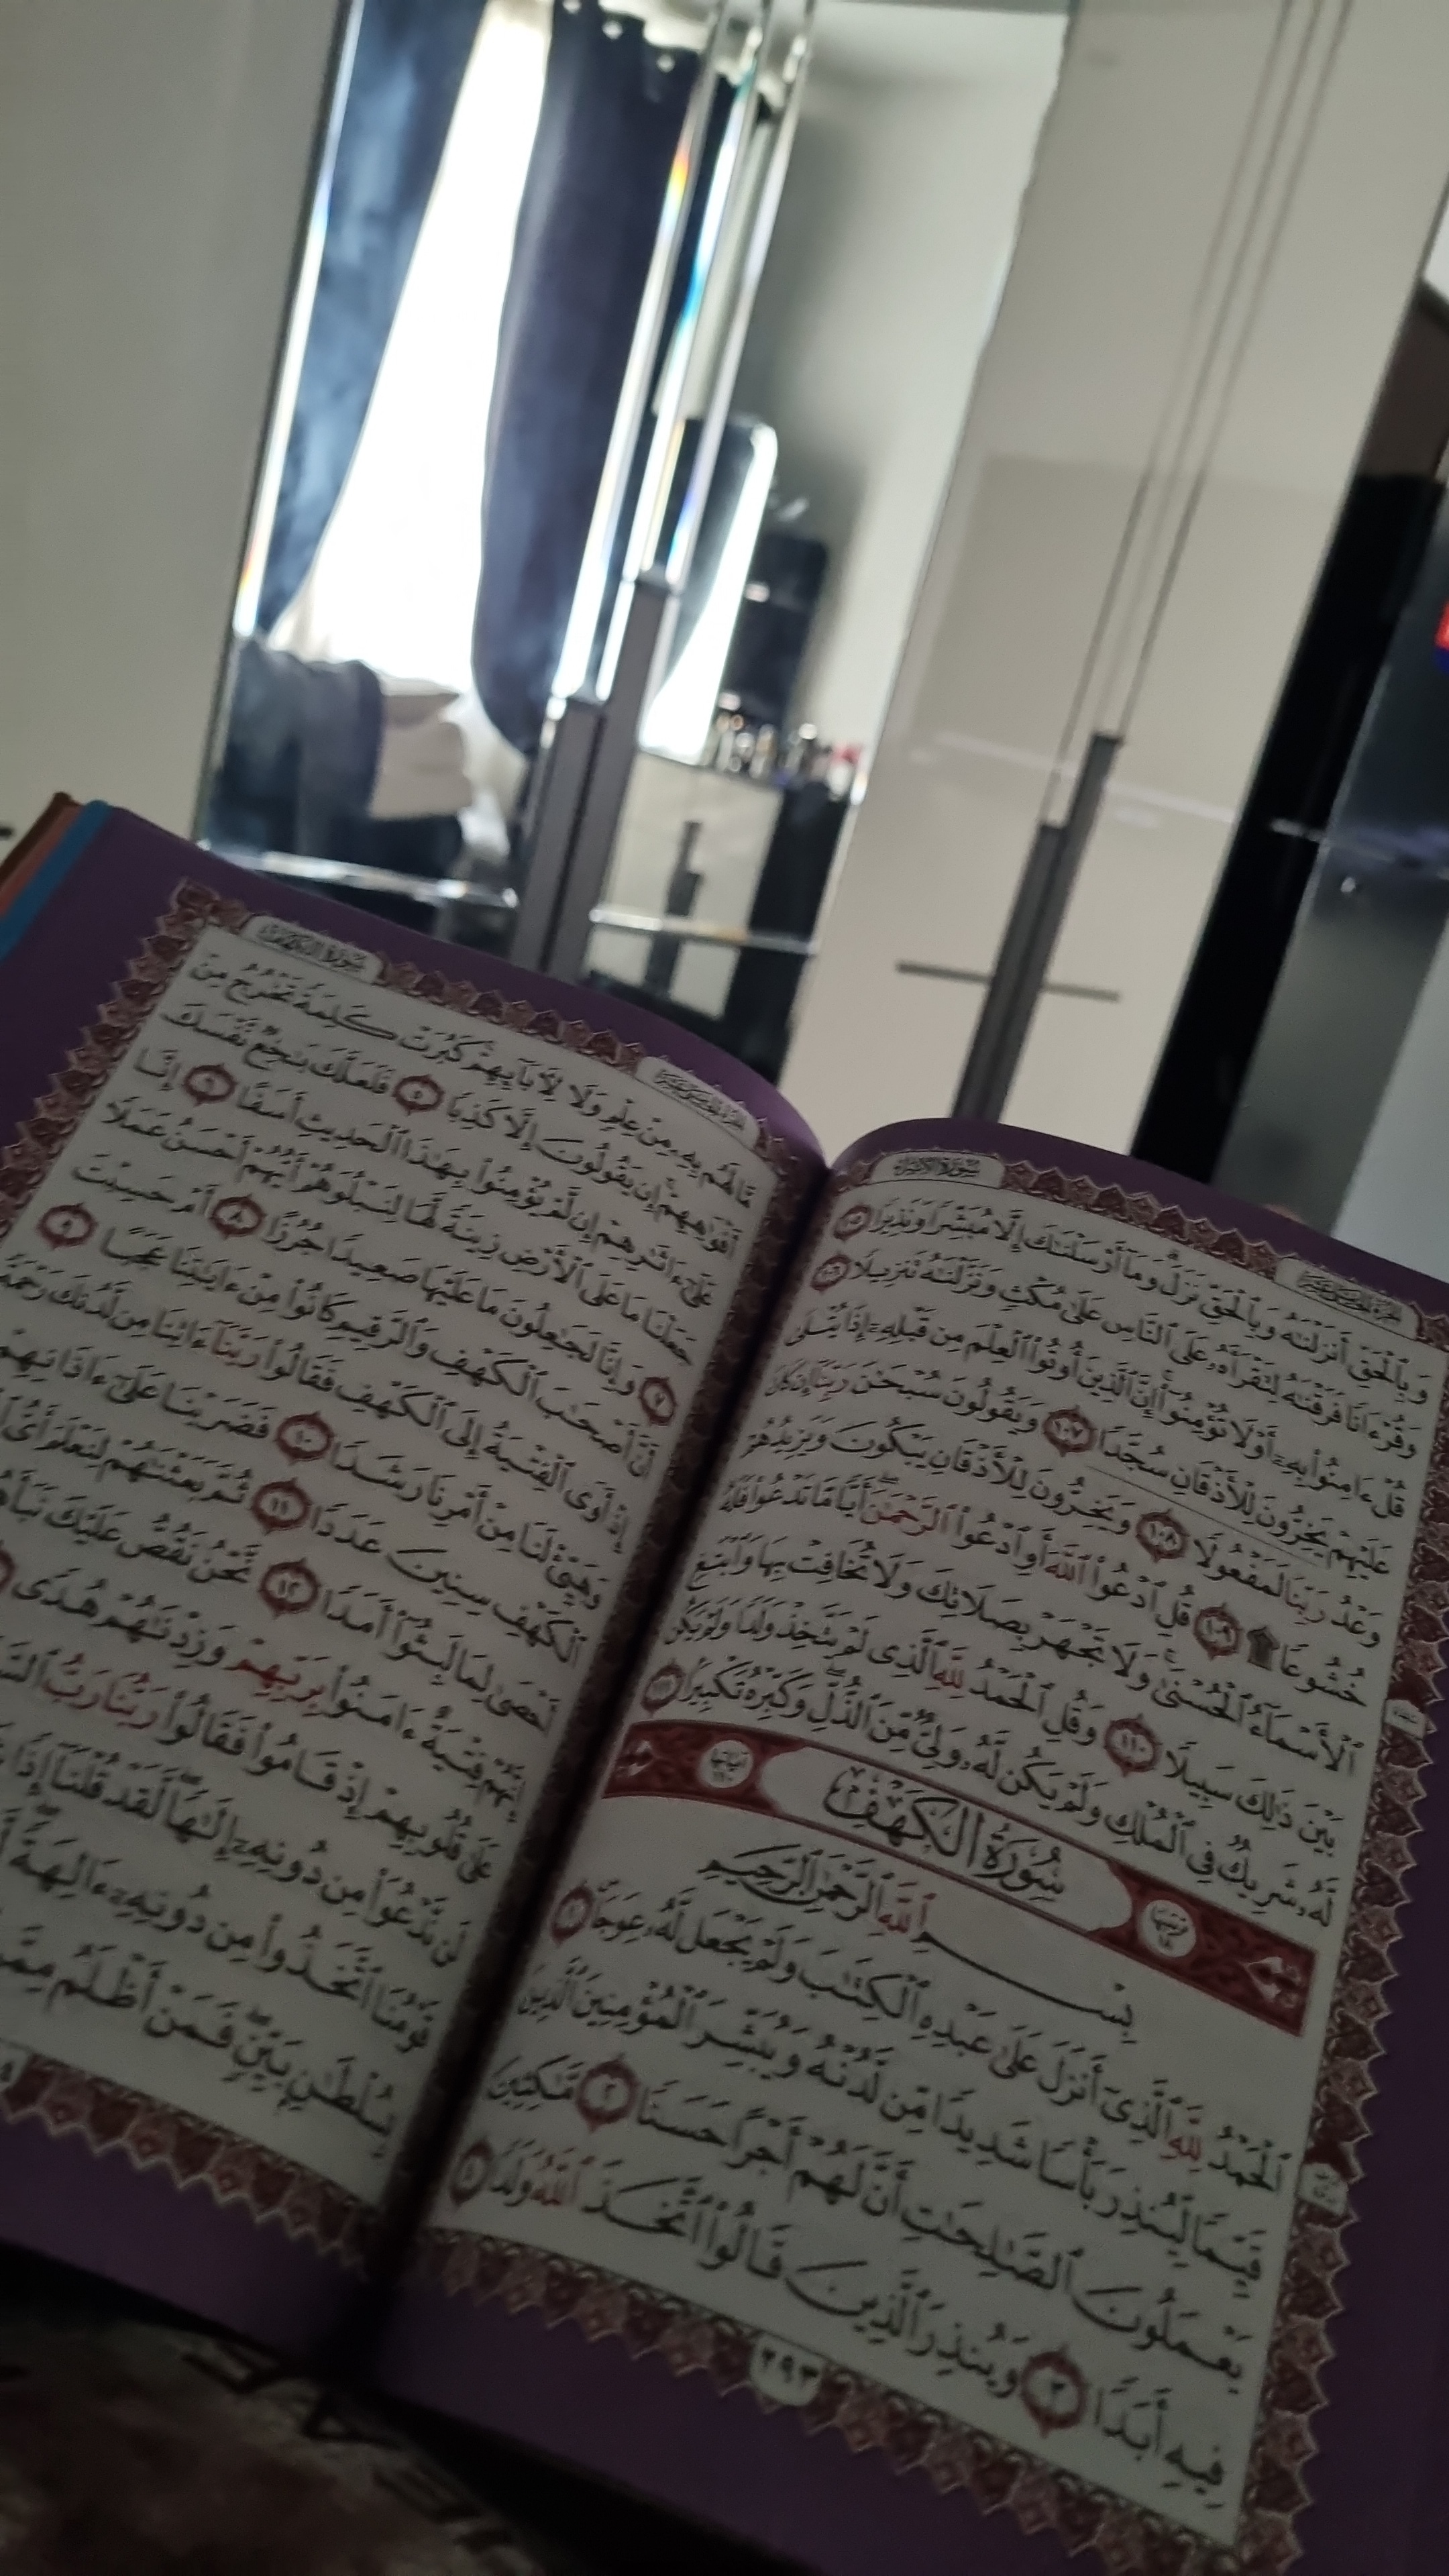 سُورَةُ الإِسْرَاءِ
وَبِٱلْحَقِّ أَنزَلْنَٰهُ وَبِٱلْحَقِّ نَزَلَ وَمَآ أَرْسَلْنَٰكَ إِلَّا مُبَشِّرًا وَنَذِيرًا ١٠٥
وَقُرْءَانًا فَرَقْنَٰهُ لِتَقْرَأَهُۥ عَلَى ٱلنَّاسِ عَلَىٰ مُكْثٍ وَنَزَّلْنَٰهُ تَنزِيلًا ١٠٦
قُلْ ءَامِنُوا۟ بِهِۦٓ أَوْ لَا تُؤْمِنُوٓا۟ إِنَّ ٱلَّذِينَ أُوتُوا۟ ٱلْعِلْمَ مِن قَبْلِهِۦٓ إِذَا يُتْلَىٰ
عَلَيْهِمْ يَخِرُّونَ لِلْأَذْقَانِ سُجَّدًا ١٠٧ وَيَقُولُونَ سُبْحَٰنَ رَبِّنَآ إِن كَانَ
وَعْدُ رَبِّنَا لَمَفْعُولًا ١٠٨ وَيَخِرُّونَ لِلْأَذْقَانِ يَبْكُونَ وَيَزِيدُهُمْ
خُشُوعًا ۩ ١٠٩ قُلِ ٱدْعُوا۟ ٱللَّهَ أَوِ ٱدْعُوا۟ ٱلرَّحْمَٰنَ أَيًّا مَّا تَدْعُوا۟ فَلَهُ
ٱلْأَسْمَآءُ ٱلْحُسْنَىٰ وَلَا تَجْهَرْ بِصَلَاتِكَ وَلَا تُخَافِتْ بِهَا وَٱبْتَغِ
بَيْنَ ذَٰلِكَ سَبِيلًا ١١٠ وَقُلِ ٱلْحَمْدُ لِلَّهِ ٱلَّذِى لَمْ يَتَّخِذْ وَلَدًا وَلَمْ يَكُن
لَّهُۥ شَرِيكٌ فِى ٱلْمُلْكِ وَلَمْ يَكُن لَّهُۥ وَلِىٌّ مِّنَ ٱلذُّلِّ وَكَبِّرْهُ تَكْبِيرًۢا ١١١
ترتيبها ١٨ سُورَةُ الْكَهْفِ آياتها ١١٠
بِسْمِ ٱللَّهِ ٱلرَّحْمَٰنِ ٱلرَّحِيمِ
ٱلْحَمْدُ لِلَّهِ ٱلَّذِىٓ أَنزَلَ عَلَىٰ عَبْدِهِ ٱلْكِتَٰبَ وَلَمْ يَجْعَل لَّهُۥ عِوَجَا ١
قَيِّمًا لِّيُنذِرَ بَأْسًا شَدِيدًا مِّن لَّدُنْهُ وَيُبَشِّرَ ٱلْمُؤْمِنِينَ ٱلَّذِينَ
يَعْمَلُونَ ٱلصَّٰلِحَٰتِ أَنَّ لَهُمْ أَجْرًا حَسَنًا ٢ مَّٰكِثِينَ
فِيهِ أَبَدًا ٣ وَيُنذِرَ ٱلَّذِينَ قَالُوا۟ ٱتَّخَذَ ٱللَّهُ وَلَدًا ٤
٢٩٣
سُورَةُ الكَهْفِ
مَّا لَهُم بِهِۦ مِنْ عِلْمٍ وَلَا لِءَابَآئِهِمْ كَبُرَتْ كَلِمَةً تَخْرُجُ مِنْ
أَفْوَٰهِهِمْ إِن يَقُولُونَ إِلَّا كَذِبًا ٥ فَلَعَلَّكَ بَٰخِعٌ نَّفْسَكَ
عَلَىٰٓ ءَاثَٰرِهِمْ إِن لَّمْ يُؤْمِنُوا۟ بِهَٰذَا ٱلْحَدِيثِ أَسَفًا ٦ إِنَّا
جَعَلْنَا مَا عَلَى ٱلْأَرْضِ زِينَةً لَّهَا لِنَبْلُوَهُمْ أَيُّهُمْ أَحْسَنُ عَمَلًا
٧ وَإِنَّا لَجَٰعِلُونَ مَا عَلَيْهَا صَعِيدًا جُرُزًا ٨ أَمْ حَسِبْتَ
أَنَّ أَصْحَٰبَ ٱلْكَهْفِ وَٱلرَّقِيمِ كَانُوا۟ مِنْ ءَايَٰتِنَا عَجَبًا ٩
إِذْ أَوَى ٱلْفِتْيَةُ إِلَى ٱلْكَهْفِ فَقَالُوا۟ رَبَّنَآ ءَاتِنَا مِن لَّدُنكَ رَحْمَةً
وَهَيِّئْ لَنَا مِنْ أَمْرِنَا رَشَدًا ١٠ فَضَرَبْنَا عَلَىٰٓ ءَاذَانِهِمْ
ٱلْكَهْفِ سِنِينَ عَدَدًا ١١ ثُمَّ بَعَثْنَٰهُمْ لِنَعْلَمَ أَىُّ
أَحْصَىٰ لِمَا لَبِثُوٓا۟ أَمَدًا ١٢ نَّحْنُ نَقُصُّ عَلَيْكَ نَبَأَهُم
إِنَّهُمْ فِتْيَةٌ ءَامَنُوا۟ بِرَبِّهِمْ وَزِدْنَٰهُمْ هُدًى
عَلَىٰ قُلُوبِهِمْ إِذْ قَامُوا۟ فَقَالُوا۟ رَبُّنَا رَبُّ
لَن نَّدْعُوَا۟ مِن دُونِهِۦٓ إِلَٰهًا لَّقَدْ قُلْنَآ إِذًا
قَوْمُنَا ٱتَّخَذُوا۟ مِن دُونِهِۦٓ ءَالِهَةً
بِسُلْطَٰنٍۭ بَيِّنٍ فَمَنْ أَظْلَمُ مِمَّنِ